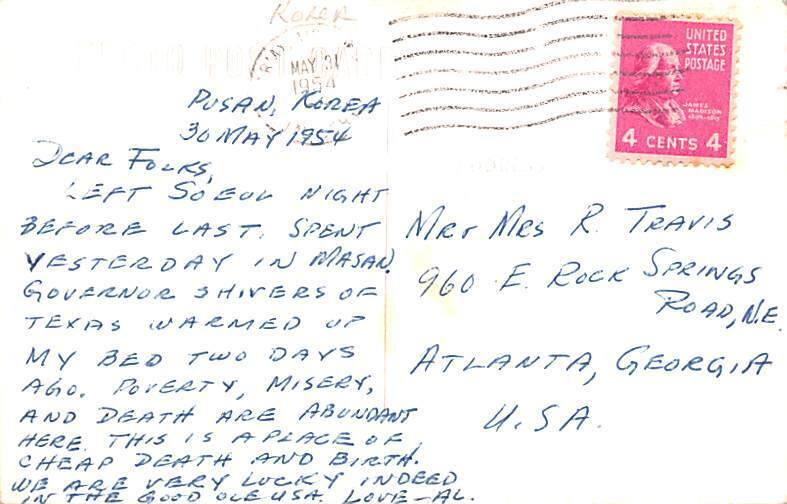 Korea
MAY 31
1954
UNITED
STATES
POSTAGE
JAMES
MADISON
4 CENTS 4
PUSAN, KOREA
30 MAY 1954
DEAR FOLKS,
LEFT SOEUL NIGHT
BEFORE LAST. SPENT
YESTERDAY IN MASAN.
GOVERNOR SHIVERS OF
TEXAS WARMED UP
MY BED TWO DAYS
AGO. POVERTY, MISERY,
AND DEATH ARE ABUNDANT
HERE. THIS IS A PLACE OF
CHEAP DEATH AND BIRTH.
WE ARE VERY LUCKY INDEED
IN THE GOOD OLE USA. LOVE—AL.
MR & MRS R. TRAVIS
960 E. ROCK SPRINGS
ROAD, N.E.
ATLANTA, GEORGIA
U.S.A.